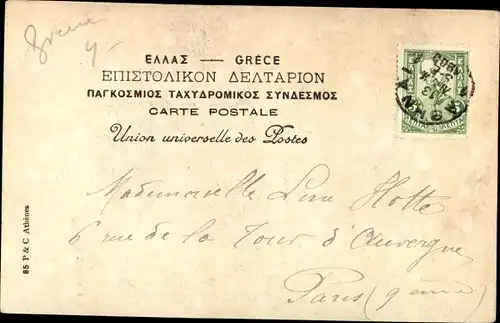 Greece
4-
ΕΛΛΑΣ — GRÈCE
ΕΠΙΣΤΟΛΙΚΟΝ ΔΕΛΤΑΡΙΟΝ
ΠΑΓΚΟΣΜΙΟΣ ΤΑΧΥΔΡΟΜΙΚΟΣ ΣΥΝΔΕΣΜΟΣ
CARTE POSTALE
Union universelle des Postes
Mademoiselle Line Hotte
6 rue de la Tour d'Auvergne
Paris (9ème)
85 P & C Athènes